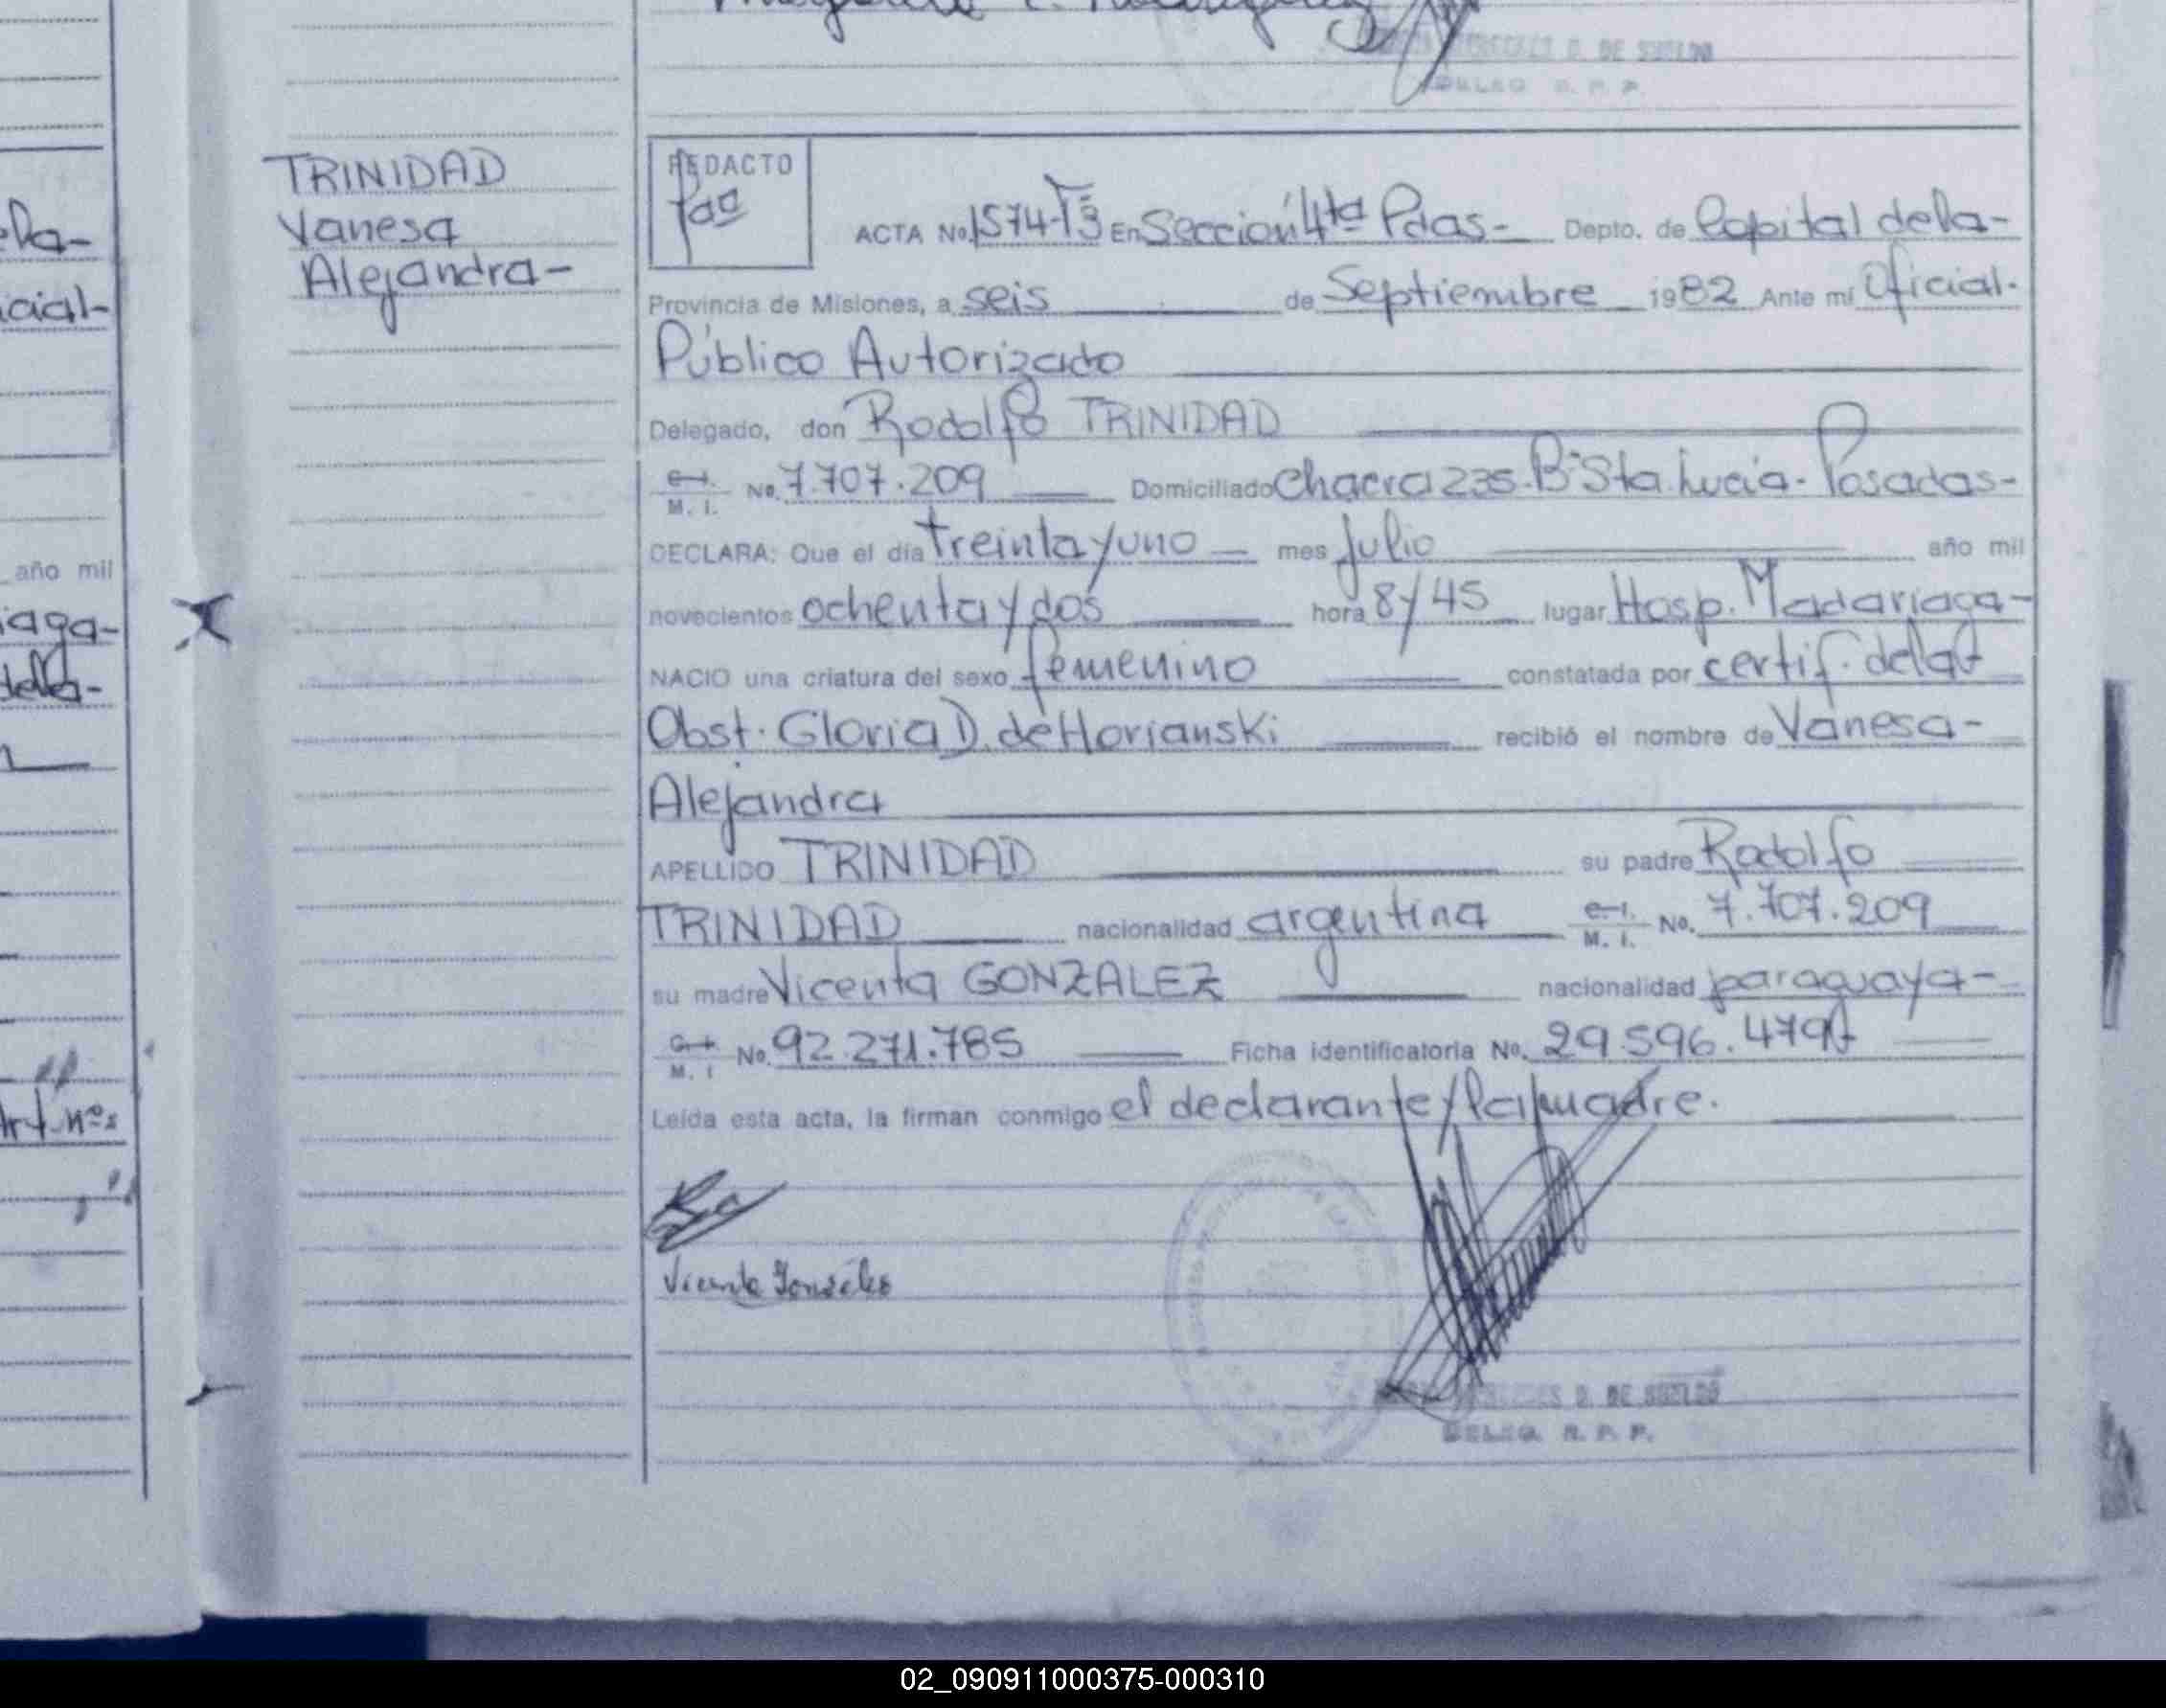 DE SUELDO
DELEG. R. P. P.
TRINIDAD
Vanesa
Alejandra-
REDACTO
ACTA No. 1574-T3 En Sección 4ta Pdas- Depto. de Capital de la-
Provincia de Misiones, a seis de Septiembre 1982 Ante mí Oficial.
Público Autorizado
Delegado, don Rodolfo TRINIDAD
C.I. M. I. No. 7.707.209 Domiciliado Chacra 235. B° Sta. Lucia. Posadas-
DECLARA: Que el día treinta y uno mes Julio año mil
novecientos ochenta y dos hora 8 y 45 lugar Hosp. Madariaga-
NACIO una criatura del sexo femenino constatada por certif. de la
Obst. Gloria D. de Horianski recibió el nombre de Vanesa-
Alejandra
APELLIDO TRINIDAD su padre Rodolfo
TRINIDAD nacionalidad argentina C.I. M. I. No. 7.707.209
su madre Vicenta GONZALEZ nacionalidad paraguaya-
C.I. M. I No. 92.271.785 Ficha identificatoria No. 29.596.479
Leída esta acta, la firman conmigo el declarante y la madre.
Vicenta Gonzáles
D. DE SUELDO
DELEG. R. P. P.
ela-
icial-
año mil
iaga-
della-
Art nos
02_090911000375-000310